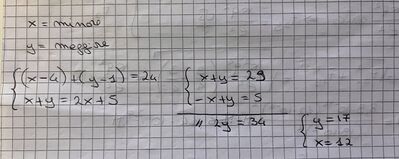 x = minore
y = maggiore
(x-4)+(y-1) = 24
x+y = 2x+5
x+y = 29
-x+y = 5
// 2y = 34
y = 17
x = 12